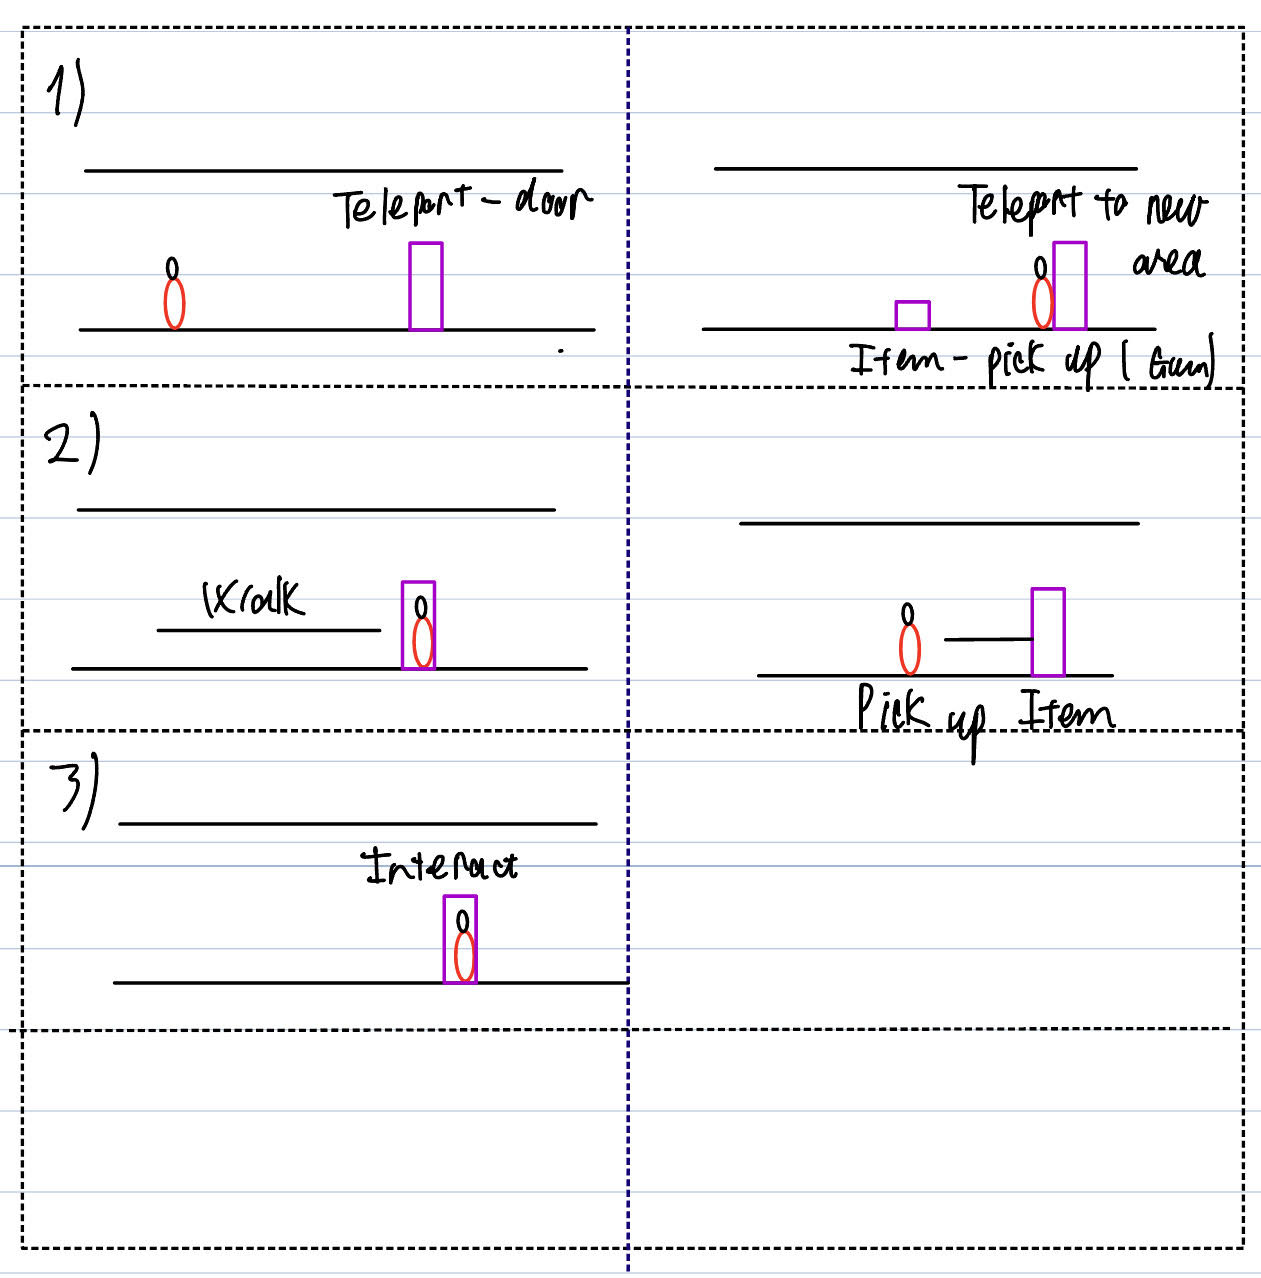 1)
Teleport - door
Teleport to new
area
Item - pick up (Gun)
2)
Walk
Pick up Item
3)
Interact